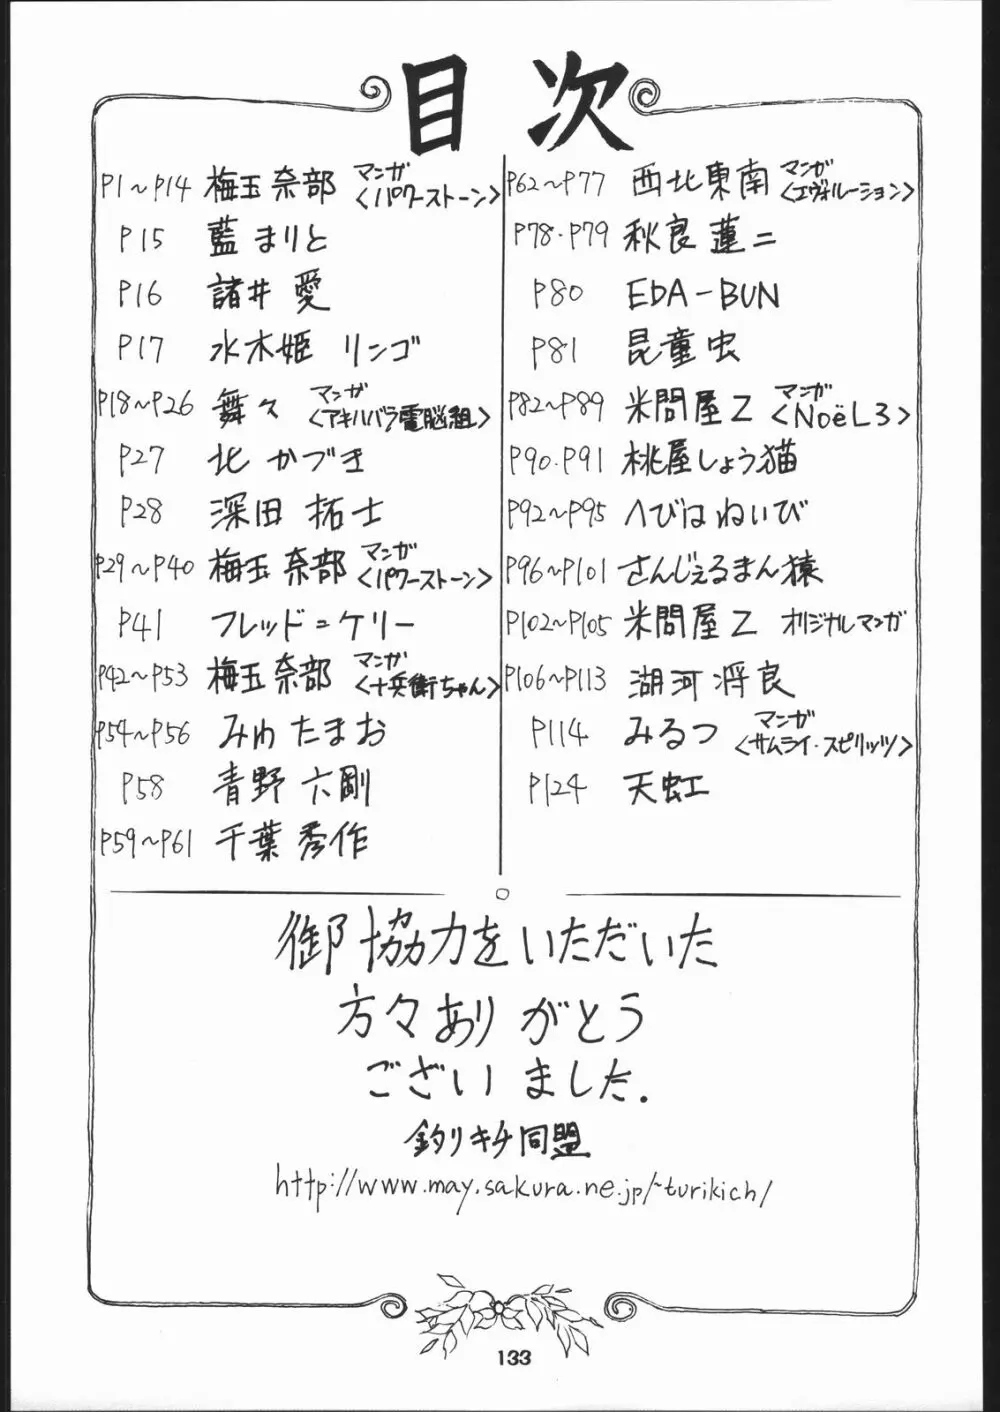 目次
P1〜P14 梅玉奈部 マンガ〈パワーストーン〉
P15 藍まりと
P16 諸井 愛
P17 水木姫 リンゴ
P18〜P26 舞々 マンガ〈アキハバラ電脳組〉
P27 北 かづき
P28 深田 拓士
P29〜P40 梅玉奈部 マンガ〈パワーストーン〉
P41 フレッド=ケリー
P42〜P53 梅玉奈部 マンガ〈十兵衛ちゃん〉
P54〜P56 みわ たまお
P58 青野 六剛
P59〜P61 千葉 秀作
P62〜P77 西北東南 マンガ〈エヴォルーション〉
P78・P79 秋良 蓮二
P80 EDA-BUN
P81 昆童虫
P82〜P89 米問屋Z マンガ〈NoëL3〉
P90・P91 桃屋しょう猫
P92〜P95 へびはねいび
P96〜P101 さんじぇるまん猿
P102〜P105 米問屋Z オリジナルマンガ
P106〜P113 湖河将良
P114 みるつ マンガ〈サムライ・スピリッツ〉
P124 天虹
御協力をいただいた
方々ありがとう
ございました.
釣りキチ同盟
http://www.may.sakura.ne.jp/~turikich/
133